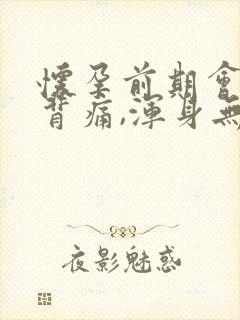 懷孕前期會
背痛,渾身無
夜影魅惑